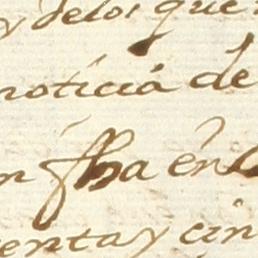 y delos que
noticia de
n fha en
enta y cin